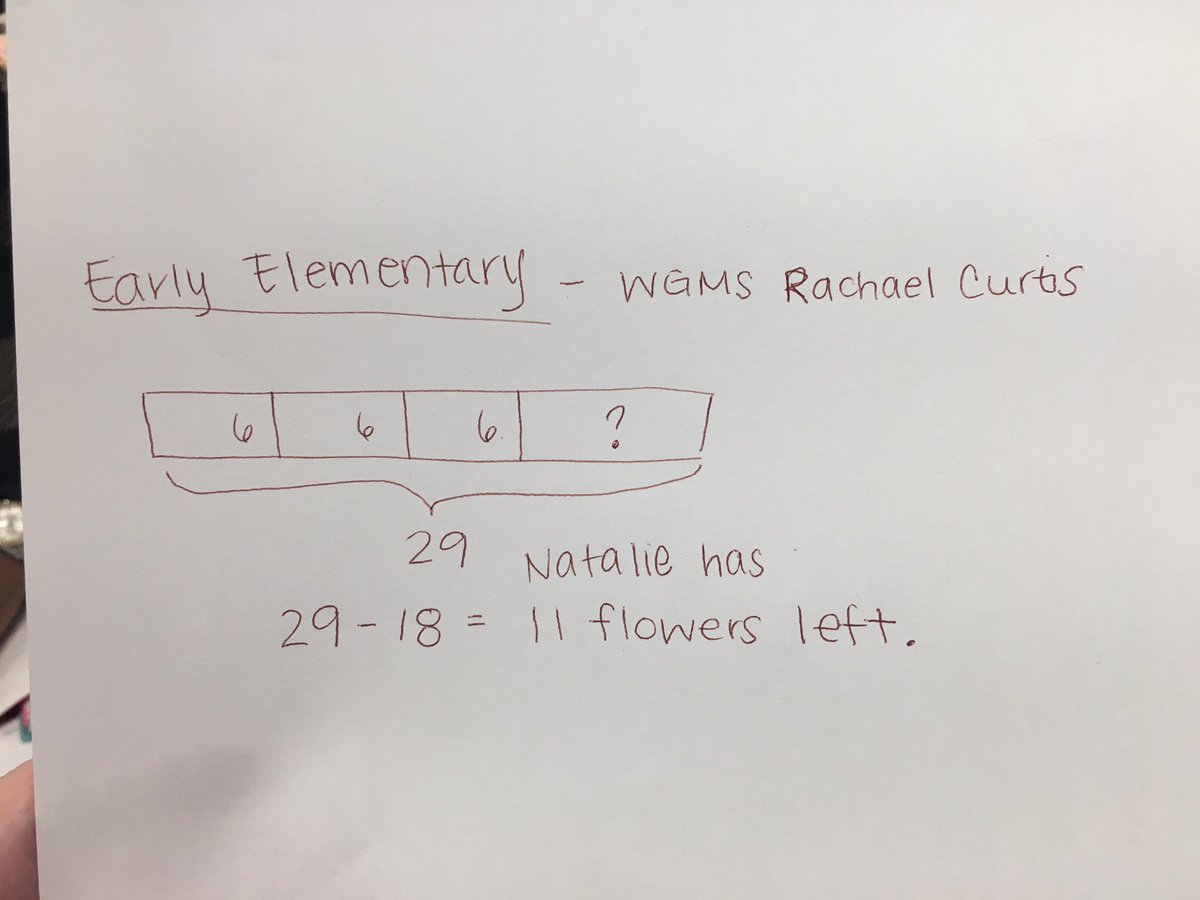 Early Elementary - WGMS Rachael Curtis
6 6 6 ?
29 Natalie has
29 - 18 = 11 flowers left.